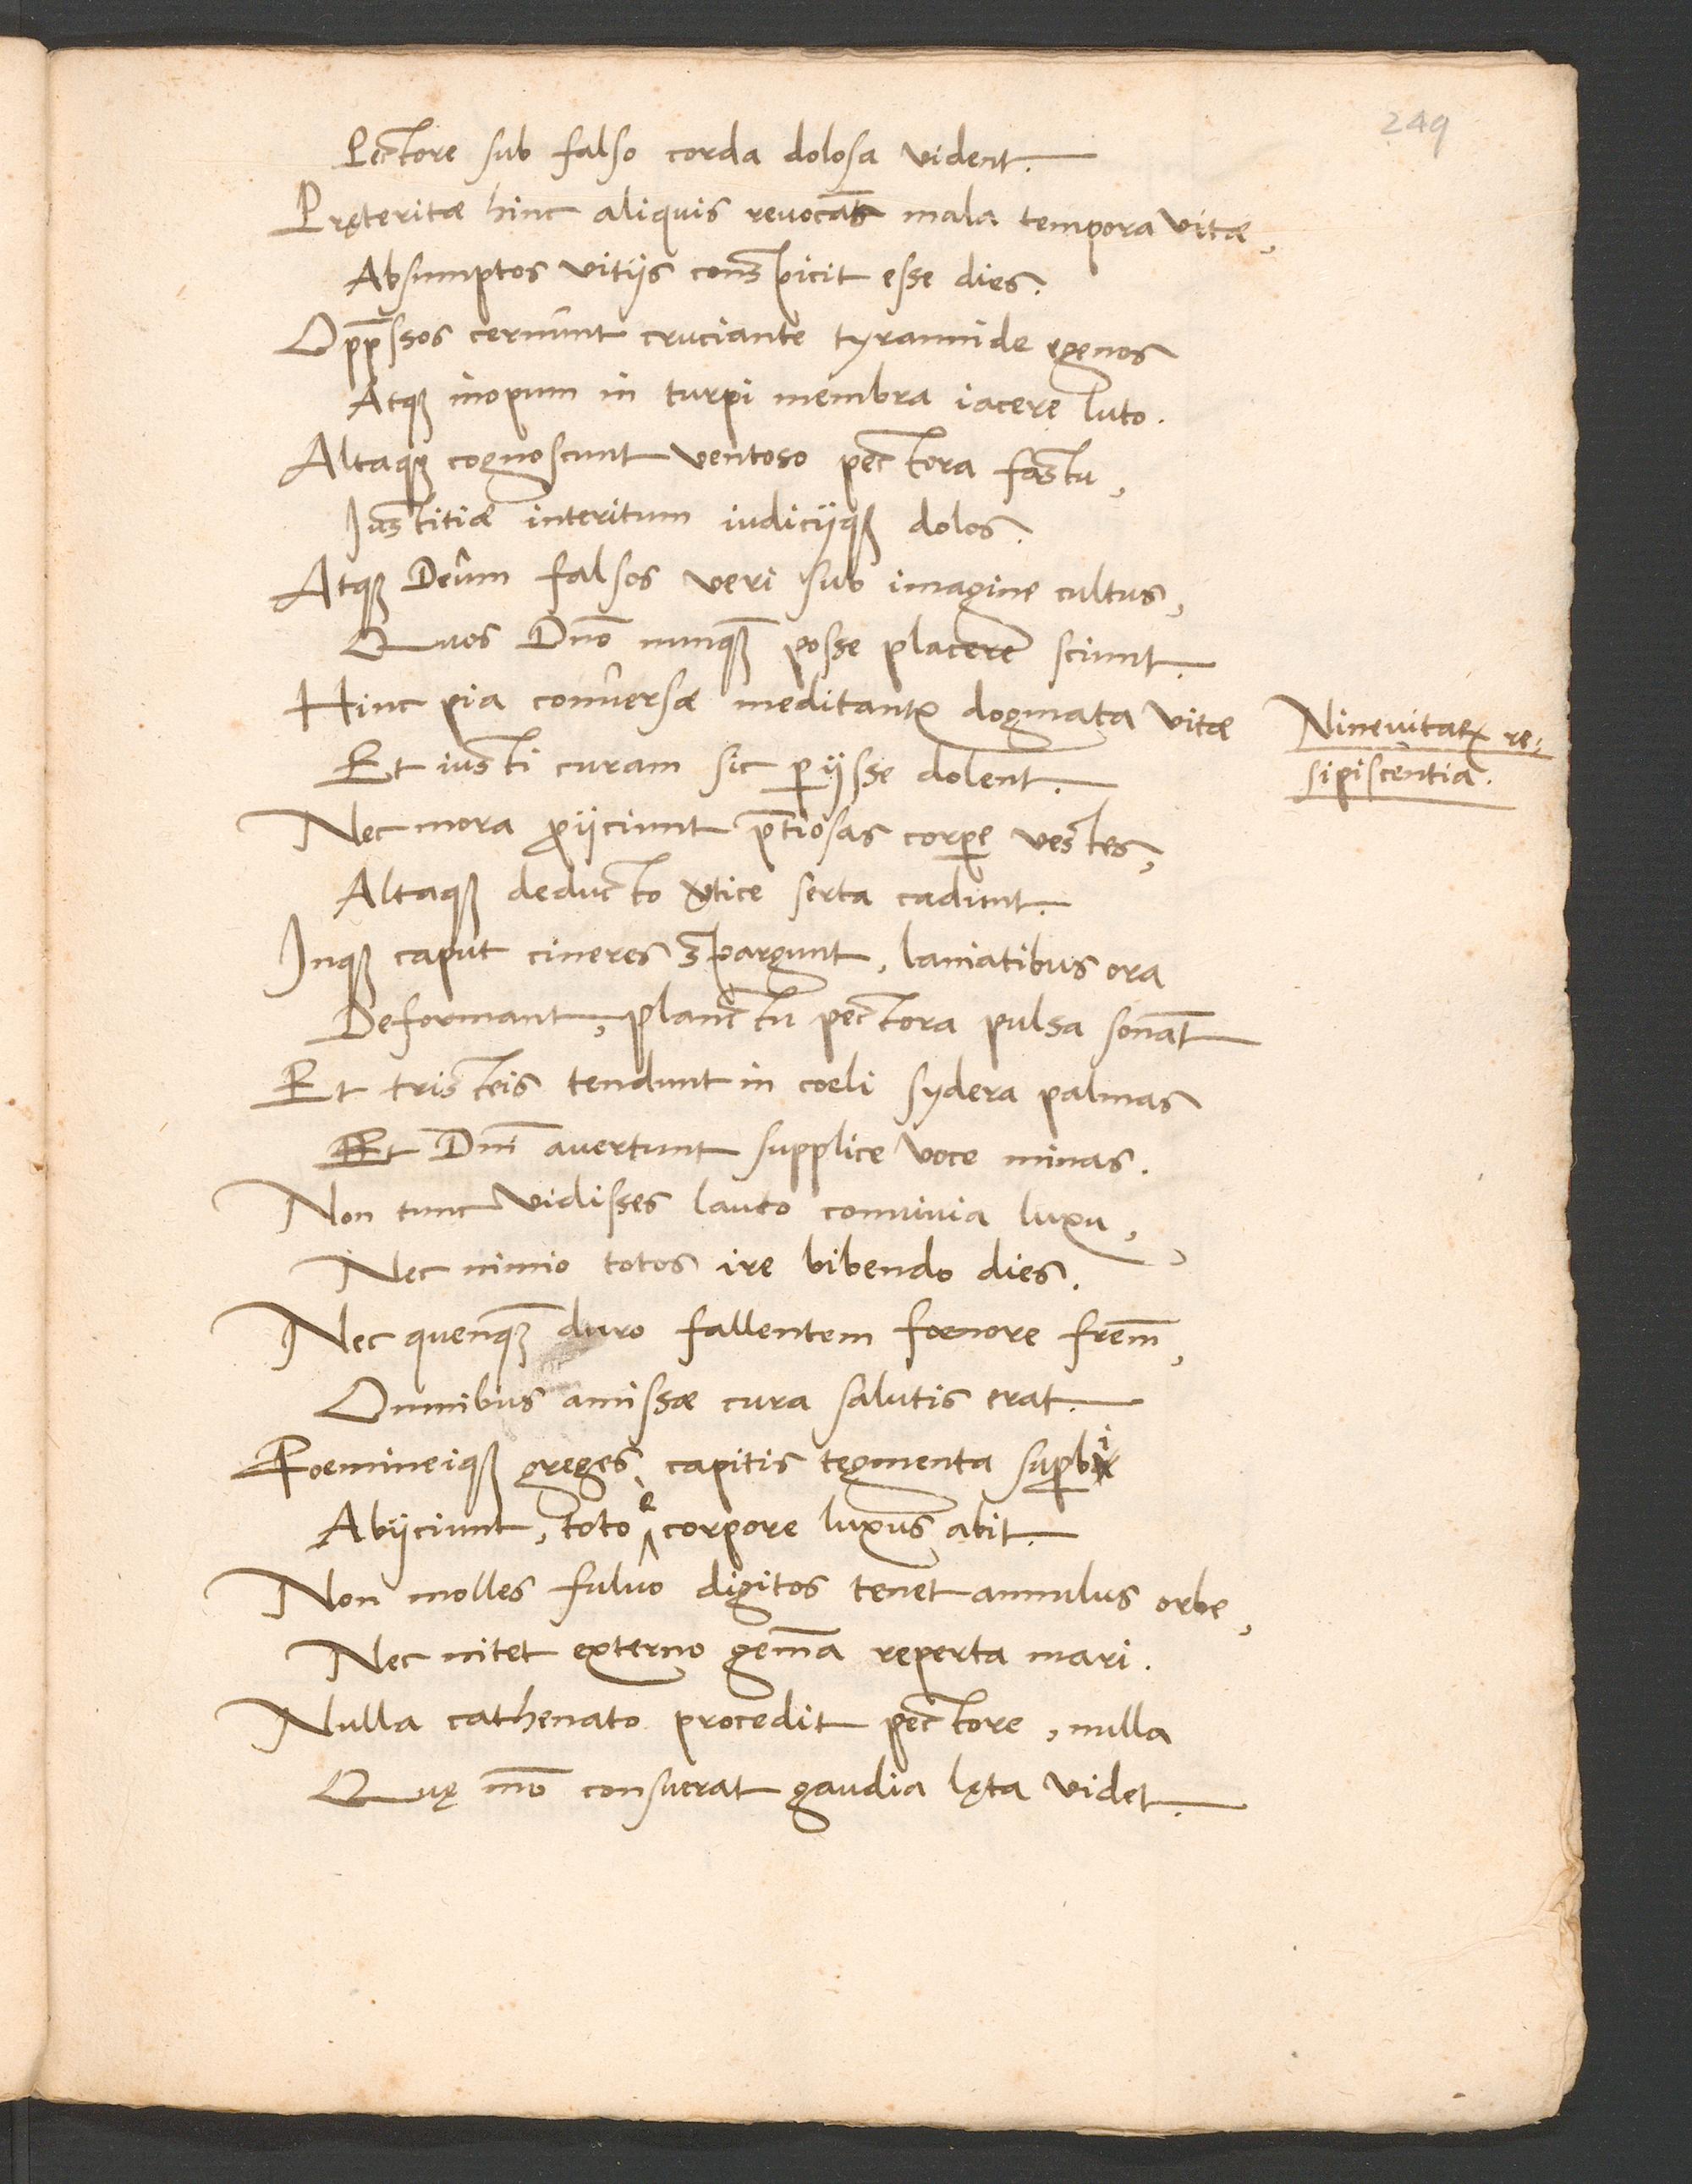 249
Pectore sub falso corda dolosa vident.
Pręteritæ hinc aliquis reuocãs mala tempora vitæ,
Absumptos vitijs conspicit esse dies.
Opp̃ssos cernunt cruciante tyrannide egenos
Atqꝫ inopum in turpi membra iacere luto.
Altaqꝫ cognoscunt ventoso pectora fastu,
Iustitiæ interitum iudicijqꝫ dolos.
Atqꝫ Deûm falsos veri sub imagine cultus,
Quos Dño nunqꝫ̃ posse placere sciunt.
Hinc pia conuersæ meditantꝛ dogmata vitæ
Nineuitaꝝ re-
sipiscentia.
Et iusti curam sic ꝑijsse dolent.
Nec mora ꝓijciunt p̃tiosas corpe̱ vestes,
Altaqꝫ deducto v̓tice serta cadunt.
Inqꝫ caput cineres spargunt, laniatibus ora
Deformant, planctu pectora pulsa sonãt
Et tristeis tendunt in coeli sydera palmas
Et Dñi auertunt supplice voce minas.
Non tunc vidisses lauto conuiuia luxu,
Nec nimio totos ire bibendo dies.
Nec quenqꝫ̃ duro fallentem foenore frẽm,
Omnibus amissæ cura salutis erat.
Foemineiqꝫ greges, capitis tegmenta suꝑbi
Abijciunt, toto è corpore luxus abit.
Non molles fuluo digitos tenet annulus orbe,
Nec nitet externo gem̃a reperta mari.
Nulla cathenato procedit pectore, nulla
Quę mõ consuerat gaudia lęta videt.